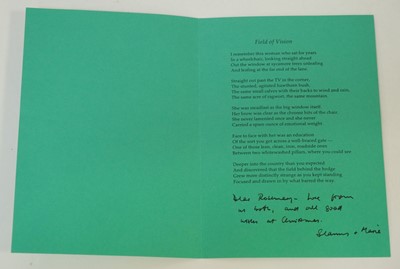 Field of Vision
I remember this woman who sat for years
In a wheelchair, looking straight ahead
Out the window at sycamore trees unleafing
And leafing at the far end of the lane.
Straight out past the TV in the corner,
The stunted, agitated hawthorn bush,
The same small calves with their backs to wind and rain,
The same acre of ragwort, the same mountain.
She was steadfast as the big window itself.
Her brow was clear as the chrome bits of the chair.
She never lamented once and she never
Carried a spare ounce of emotional weight.
Face to face with her was an education
Of the sort you got across a well-braced gate —
One of those lean, clean, iron, roadside ones
Between two whitewashed pillars, where you could see
Deeper into the country than you expected
And discovered that the field behind the hedge
Grew more distinctly strange as you kept standing
Focused and drawn in by what barred the way.
Dear Rosemary - Love from
us both, and all good
wishes at Christmas.
Seamus + Marie